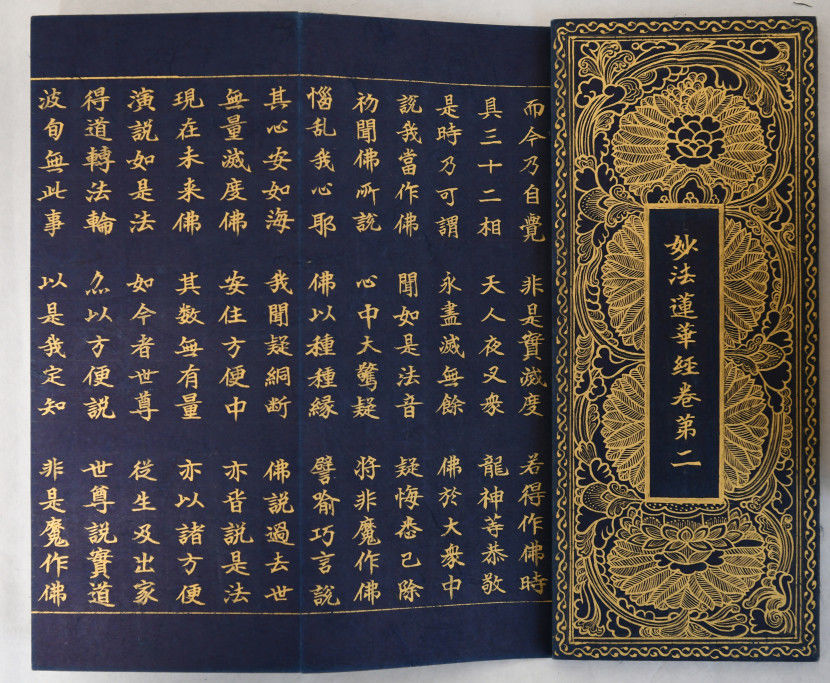 妙法蓮華経卷第二
而今乃自覺 非是實滅度 若得作佛時
具三十二相 天人夜叉衆 龍神等恭敬
是時乃可謂 永盡滅無餘 佛於大衆中
説我當作佛 聞如是法音 疑悔悉已除
初聞佛所説 心中大驚疑 将非魔作佛
惱乱我心耶 佛以種種縁 譬喻巧言説
其心安如海 我聞疑網断 佛説過去世
無量滅度佛 安住方便中 亦皆説是法
現在未来佛 其數無有量 亦以諸方便
演説如是法 如今者世尊 從生及出家
得道轉法輪 亦以方便説 世尊説實道
波旬無此事 以是我定知 非是魔作佛